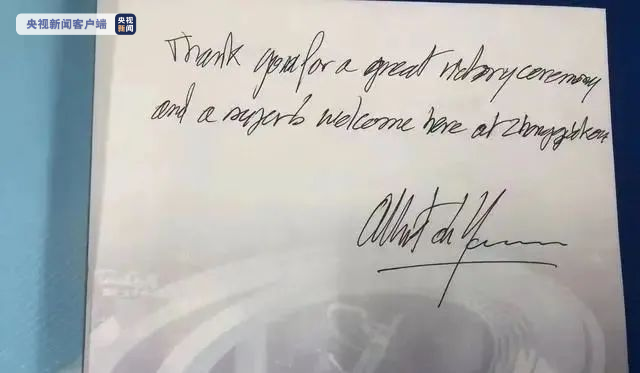 央视新闻客户端
央视
新闻
Thank you for a great victory ceremony
and a superb welcome here at Zhangjiakou